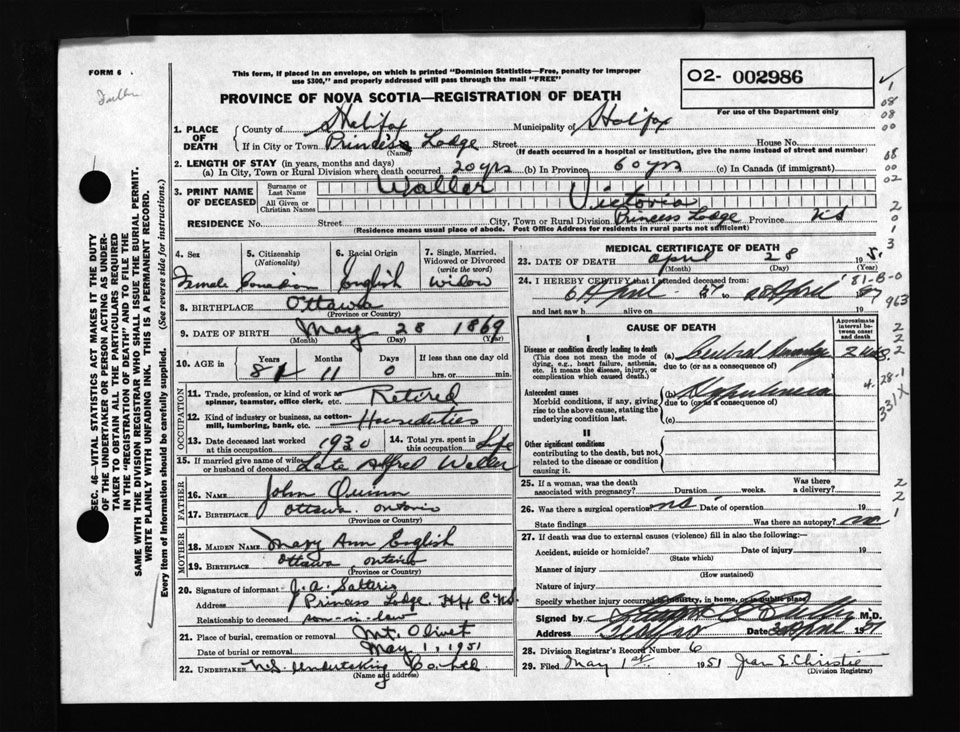 FORM 6
Fuller
This form, if placed in an envelope, on which is printed "Dominion Statistics—Free, penalty for improper
use $300," and properly addressed will pass through the mail "FREE"
PROVINCE OF NOVA SCOTIA—REGISTRATION OF DEATH
O2- 002986
For use of the Department only
1. PLACE OF DEATH
County of Halifax Municipality of Halifax
If in City or Town Princess Lodge Street House No.
(Name) (If death occurred in a hospital or institution, give the name instead of street and number)
2. LENGTH OF STAY (in years, months and days)
(a) In City, Town or Rural Division where death occurred 20 yrs (b) In Province 60 yrs (c) In Canada (if immigrant)
3. PRINT NAME OF DECEASED
Surname or Last Name Waller
All Given or Christian Names Victoria
RESIDENCE No. Street City, Town or Rural Division Princess Lodge Province NS
(Residence means usual place of abode. Post Office Address for residents in rural parts not sufficient)
4. Sex 5. Citizenship (Nationality) 6. Racial Origin 7. Single, Married, Widowed or Divorced (write the word)
Female Canadian English Widow
8. BIRTHPLACE Ottawa
(Province or Country)
9. DATE OF BIRTH May 28 1869
(Month) (Day) (Year)
10. AGE in Years Months Days If less than one day old
81 11 0 hrs. or min.
OCCUPATION
11. Trade, profession, or kind of work as spinner, teamster, office clerk, etc. Retired
12. Kind of industry or business, as cotton-mill, lumbering, bank, etc. Houseduties
13. Date deceased last worked at this occupation 1930 14. Total yrs. spent in this occupation Life
15. If married give name of wife or husband of deceased Late Alfred Waller
FATHER
16. NAME John Quinn
17. BIRTHPLACE Ottawa Ontario
(Province or Country)
MOTHER
18. MAIDEN NAME Mary Ann English
19. BIRTHPLACE Ottawa Ontario
(Province or Country)
20. Signature of informant J.A.
Address Princess Lodge, Hfx C. NS.
Relationship to deceased son-in-law
21. Place of burial, cremation or removal Mt. Olivet
Date of burial or removal May 1, 1951
22. UNDERTAKER N.S. Undertaking Co.
(Name and address)
MEDICAL CERTIFICATE OF DEATH
23. DATE OF DEATH April 28 1951
(Month) (Day) (Year)
24. I HEREBY CERTIFY that I attended deceased from
6 April 28 April
and last saw h alive on 19
CAUSE OF DEATH
Approximate interval between onset and death
I
Disease or condition directly leading to death
(This does not mean the mode of dying, e.g., heart failure, asthenia, etc. It means the disease, injury, or complication which caused death.)
(a) Cerebral
due to (or as a consequence of)
Antecedent causes
Morbid conditions, if any, giving rise to the above cause, stating the underlying condition last.
(b)
due to (or as a consequence of)
(c)
II
Other significant conditions
contributing to the death, but not related to the disease or condition causing it.
25. If a woman, was the death associated with pregnancy? Duration weeks. Was there a delivery?
26. Was there a surgical operation no Date of operation 19
State findings Was there an autopsy? no
27. If death was due to external causes (violence) fill in also the following:—
Accident, suicide or homicide? Date of injury 19
(State which)
Manner of injury
(How sustained)
Nature of injury
Specify whether injury occurred in industry, in home, or in public place
Signed by M.D.
Address Date 30 April 19
28. Division Registrar's Record Number 6
29. Filed May 1st 1951 Jean E. Christie
(Division Registrar)
SEC. 46—VITAL STATISTICS ACT MAKES IT THE DUTY
OF THE UNDERTAKER OR PERSON ACTING AS UNDER-
TAKER TO OBTAIN ALL THE PARTICULARS REQUIRED
IN THE "REGISTRATION OF DEATH" AND TO FILE THE
SAME WITH THE DIVISION REGISTRAR WHO SHALL ISSUE THE BURIAL PERMIT.
WRITE PLAINLY WITH UNFADING INK. THIS IS A PERMANENT RECORD.
Every item of Information should be carefully supplied. (See reverse side for instructions.)
1
08
08
00
08
02
2
0
1
3
81-B-0
963
2
2
2
4-28-1
331X
2
2
1